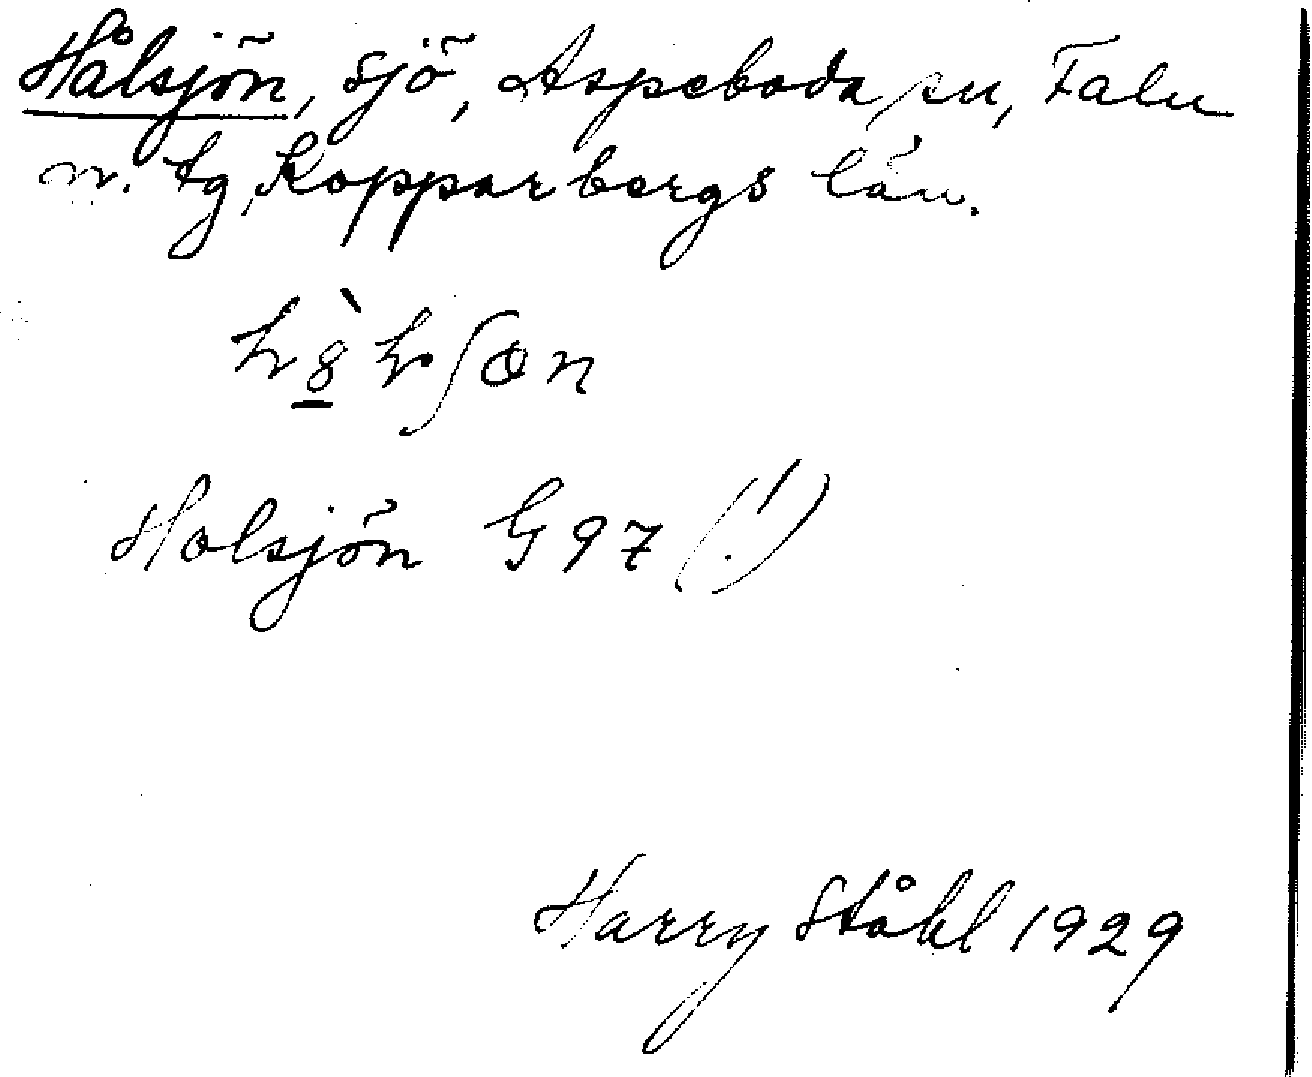 Hålsjön, sjö, Aspeboda sn, Falu
n. tg, Kopparbergs län.
Holsjön G 97 (!)
Harry Ståhl 1929